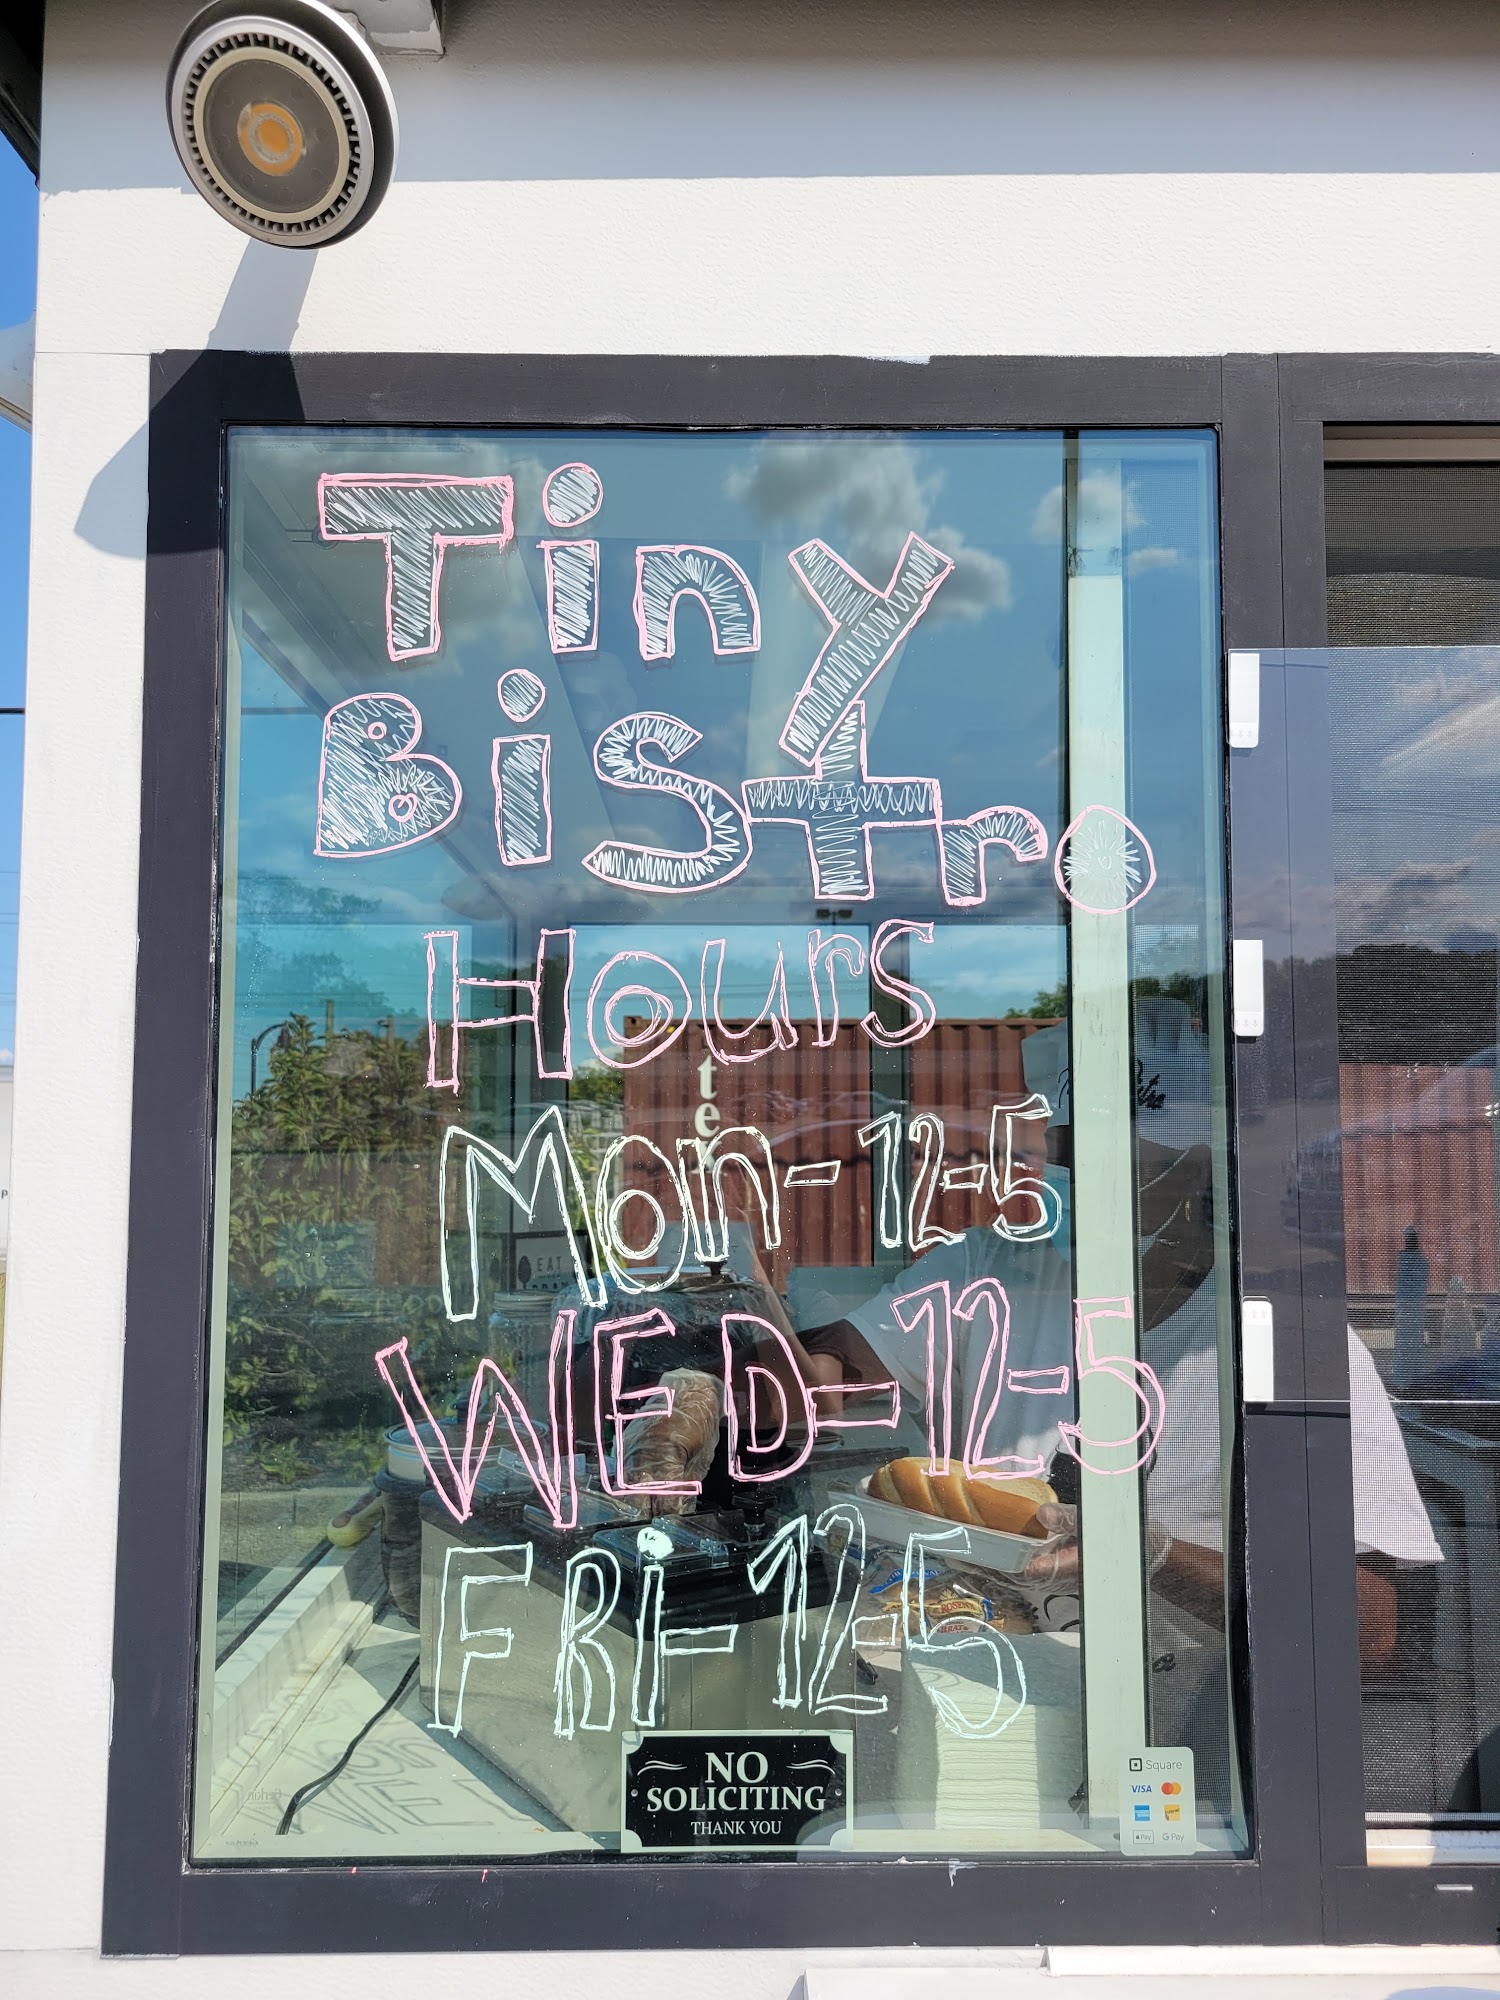 Tiny
BiStro
Hours
Mon-12-5
WED-12-5
FRi-12-5
EAT
NO
SOLICITING
THANK YOU
Square
VISA
Pay G Pay